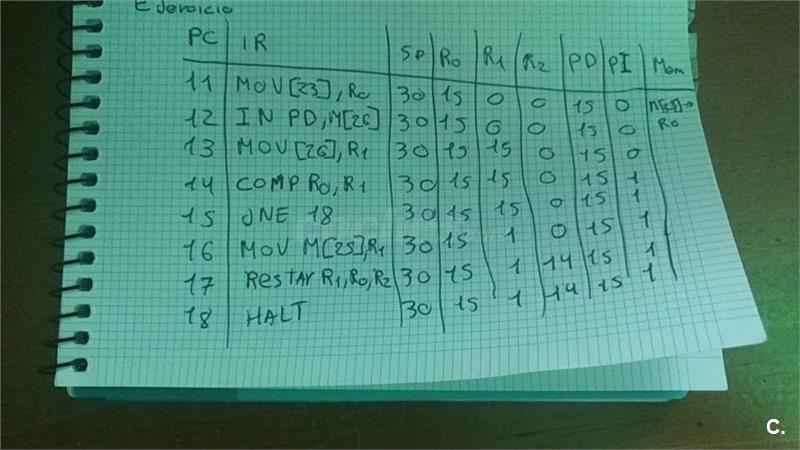 Ejercicio
PC IR SP R0 R1 R2 PD PI Mem
11 MOV[23],R0 30 15 0 0 15 0 M[25]→
R0
12 IN PD,M[26] 30 15 0 0 15 0
13 MOV[26],R1 30 15 15 0 15 0
14 COMP R0,R1 30 15 15 0 15 1
15 JNE 18 30 15 15 0 15 1
16 MOV M[25],R1 30 15 1 0 15 1
17 Restar R1,R0,R2 30 15 1 14 15 1
18 HALT 30 15 1 14 15 1
C.